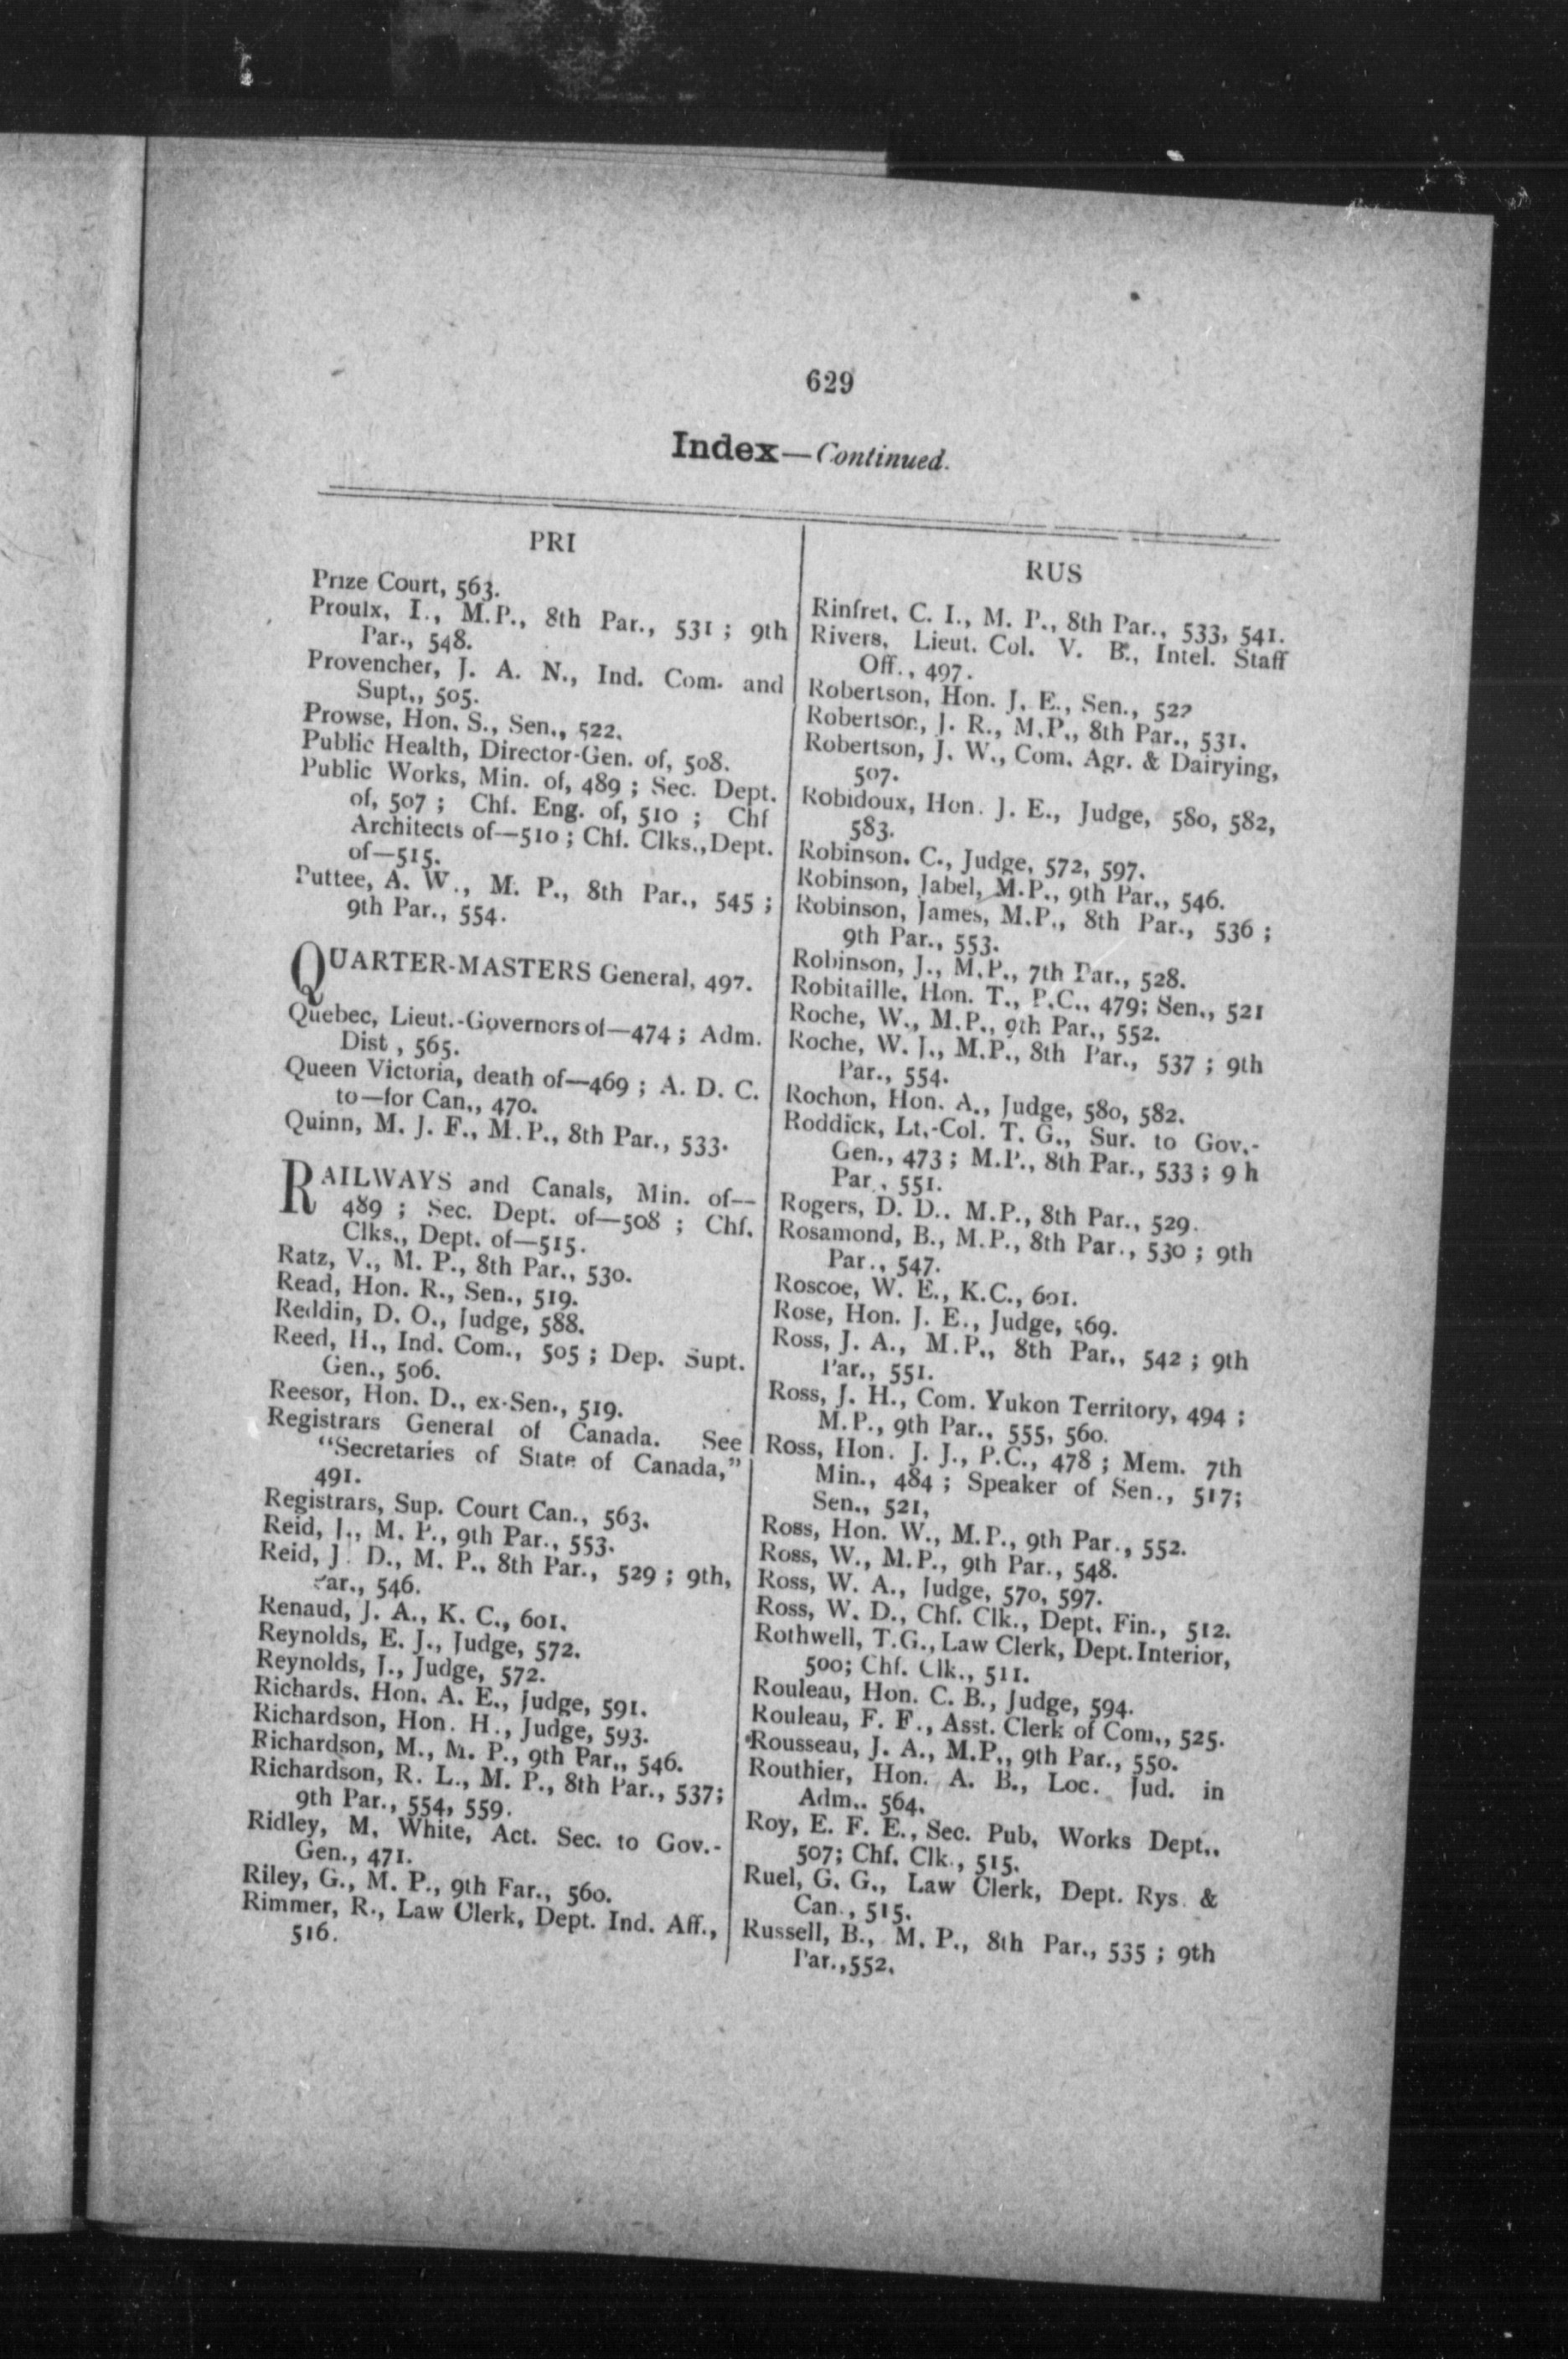 629
Index—Continued.
PRI
Prize Court, 563.
Proulx, I., M.P., 8th Par., 531 ; 9th
Par., 548.
Provencher, J. A. N., Ind. Com. and
Supt., 505.
Prowse, Hon. S., Sen., 522.
Public Health, Director-Gen. of, 508.
Public Works, Min. of, 489 ; Sec. Dept.
of, 507 ; Chf. Eng. of, 510 ; Chf
Architects of—510 ; Chf. Clks., Dept.
of—515.
Puttee, A. W., M. P., 8th Par., 545 ;
9th Par., 554.
QUARTER-MASTERS General, 497.
Quebec, Lieut.-Governors of—474 ; Adm.
Dist , 565.
Queen Victoria, death of—469 ; A. D. C.
to—for Can., 470.
Quinn, M. J. F., M.P., 8th Par., 533.
RAILWAYS and Canals, Min. of—
489 ; Sec. Dept. of—508 ; Chf.
Clks., Dept. of—515.
Ratz, V., M. P., 8th Par., 530.
Read, Hon. R., Sen., 519.
Reddin, D. O., Judge, 588.
Reed, H., Ind. Com., 505 ; Dep. Supt.
Gen., 506.
Reesor, Hon. D., ex-Sen., 519.
Registrars General of Canada. See
"Secretaries of State of Canada,"
491.
Registrars, Sup. Court Can., 563.
Reid, J., M. P., 9th Par., 553.
Reid, J. D., M. P., 8th Par., 529 ; 9th,
Par., 546.
Renaud, J. A., K. C., 601.
Reynolds, E. J., Judge, 572.
Reynolds, J., Judge, 572.
Richards, Hon. A. E., Judge, 591.
Richardson, Hon. H., Judge, 593.
Richardson, M., M. P., 9th Par., 546.
Richardson, R. L., M. P., 8th Par., 537;
9th Par., 554, 559.
Ridley, M. White, Act. Sec. to Gov.-
Gen., 471.
Riley, G., M. P., 9th Far., 560.
Rimmer, R., Law Clerk, Dept. Ind. Aff.,
516.
RUS
Rinfret, C. I., M. P., 8th Par., 533, 541.
Rivers, Lieut. Col. V. B., Intel. Staff
Off., 497.
Robertson, Hon. J. E., Sen., 522
Robertson, J. R., M.P., 8th Par., 531.
Robertson, J. W., Com. Agr. & Dairying,
507.
Robidoux, Hon. J. E., Judge, 580, 582,
583.
Robinson, C., Judge, 572, 597.
Robinson, Jabel, M.P., 9th Par., 546.
Robinson, James, M.P., 8th Par., 536 ;
9th Par., 553.
Robinson, J., M.P., 7th Par., 528.
Robitaille, Hon. T., P.C., 479; Sen., 521
Roche, W., M.P., 9th Par., 552.
Roche, W. J., M.P., 8th Par., 537 ; 9th
Par., 554.
Rochon, Hon. A., Judge, 580, 582.
Roddick, Lt.-Col. T. G., Sur. to Gov.-
Gen., 473 ; M.P., 8th Par., 533 ; 9 h
Par., 551.
Rogers, D. D.. M.P., 8th Par., 529.
Rosamond, B., M.P., 8th Par., 530 ; 9th
Par., 547.
Roscoe, W. E., K.C., 601.
Rose, Hon. J. E., Judge, 569.
Ross, J. A., M.P., 8th Par., 542 ; 9th
Par., 551.
Ross, J. H., Com. Yukon Territory, 494 ;
M.P., 9th Par., 555, 560.
Ross, Hon. J. J., P.C., 478 ; Mem. 7th
Min., 484 ; Speaker of Sen., 517;
Sen., 521,
Ross, Hon. W., M.P., 9th Par., 552.
Ross, W., M.P., 9th Par., 548.
Ross, W. A., Judge, 570, 597.
Ross, W. D., Chf. Clk., Dept. Fin., 512.
Rothwell, T.G., Law Clerk, Dept. Interior,
500; Chf. Clk., 511.
Rouleau, Hon. C. B., Judge, 594.
Rouleau, F. F., Asst. Clerk of Com., 525.
Rousseau, J. A., M.P., 9th Par., 550.
Routhier, Hon. A. B., Loc. Jud. in
Adm.. 564.
Roy, E. F. E., Sec. Pub. Works Dept.,
507; Chf. Clk., 515.
Ruel, G. G., Law Clerk, Dept. Rys. &
Can., 515.
Russell, B., M. P., 8th Par., 535 ; 9th
Par., 552.